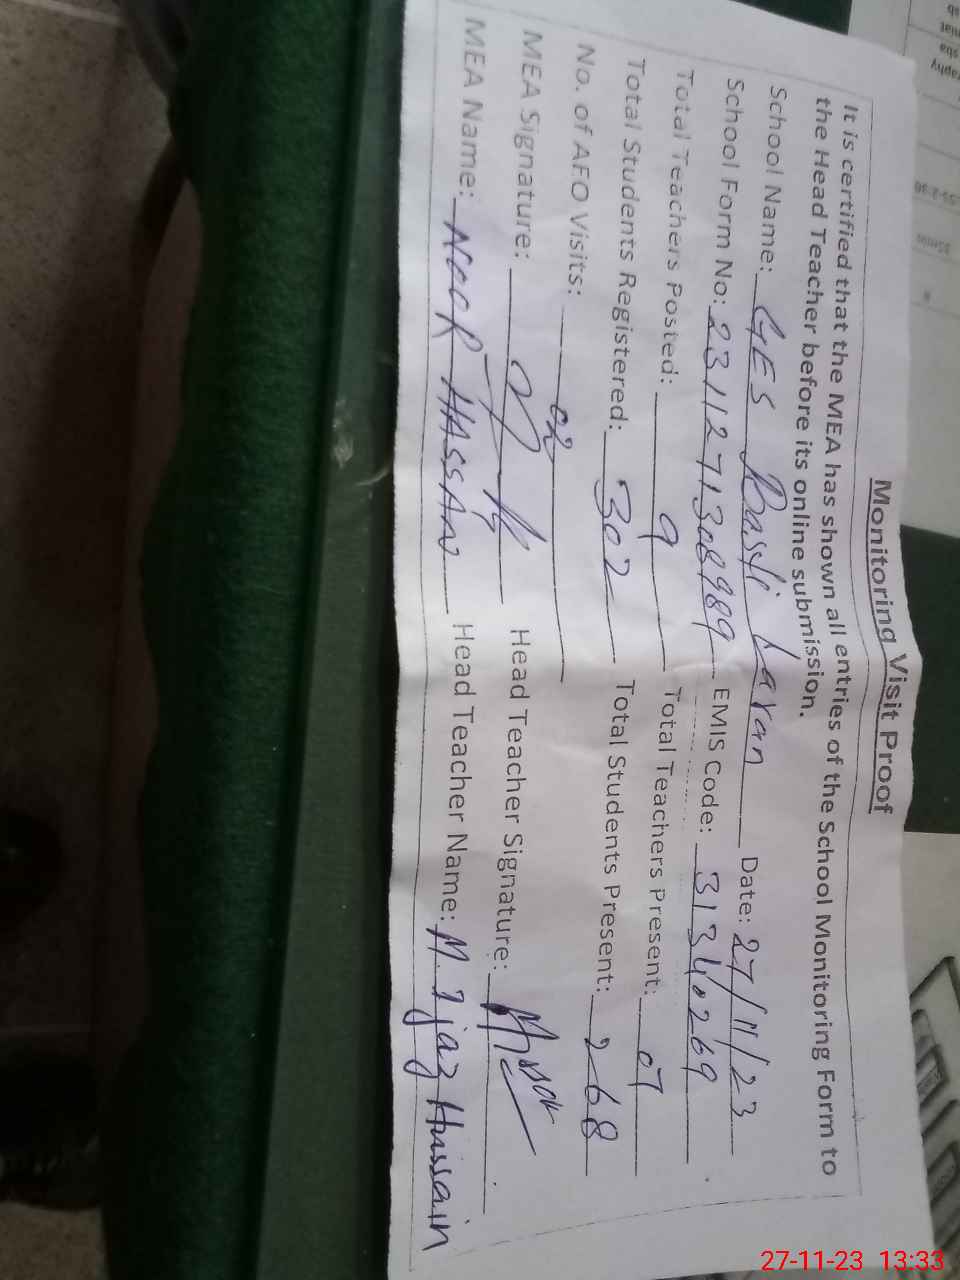 Monitoring Visit Proof
It is certified that the MEA has shown all entries of the School Monitoring Form to
the Head Teacher before its online submission.
School Name: GES Basti Laran Date: 27/11/23
School Form No: 2311271308989 EMIS Code: 31340269
Total Teachers Posted: 9 Total Teachers Present: 07
Total Students Registered: 302 Total Students Present: 268
No. of AEO Visits: 02
MEA Signature: Head Teacher Signature:
MEA Name: NOOR HASSAN Head Teacher Name: M. Ijaz Hussain
27-11-23 13:33